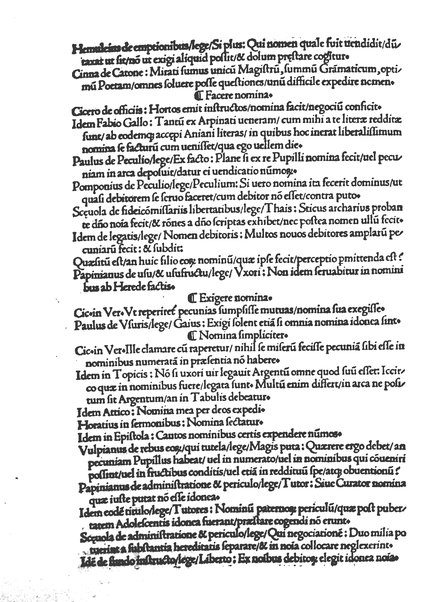 Hemuleius de emptionibus/lege/Si plus: Qui nomen quale fuit uendidit/dū
taxat ut sit/nō ut exigi aliquid possit/& dolum præstare cogitur.
Cinna de Catone: Mirati sumus unicū Magistrū, summū Grāmaticum, opti-
mū Poetam/omnes soluere posse questiones/unū difficile expedire nomen.
¶ Facere nomina.
Cicero de officiis: Hortos emit instructos/nomina facit/negociū conficit.
Idem Fabio Gallo: Tantū ex Arpinati ueneram/cum mihi a te literæ redditæ
sunt/ab eodemq; accepi Auiani literas/in quibus hoc inerat liberalissimum
nomina se facturū cum uenisset/qua ego uellem die.
Paulus de Peculio/lege/Ex facto: Plane si ex re Pupilli nomina fecit/uel pecu-
niam in arca deposuit/datur ei uendicatio nūmoꝝ.
Pomponius de Peculio/lege/Peculium: Si uero nomina ita fecerit dominus/ut
quasi debitorem se seruo faceret/cum debitor nō esset/contra puto.
Scæuola de fideicōmissariis libertatibus/lege/Thais: Sticus archarius proban
te dño noīa fecit/& rōnes a dño scriptas exhibet/nec postea nomen ullū fecit.
Idem de legatis/lege/Nomen debitoris: Multos nouos debitores amplarū pe-
cuniarū fecit: & subdit:
Quæsitū est/an huic filio eoꝝ nominū/quæ ipse fecit/perceptio pmittenda est?
Papinianus de usu/& usufructu/lege/Vxori: Non idem seruabitur in nomini
bus ab Herede factis.
¶ Exigere nomina.
Cic. in Ver. Vt reperiret pecunias sumpsisse mutuas/nomina sua exegisse.
Paulus de Vsuris/lege/Gaius: Exigi solent etiā si omnia nomina idonea sint.
¶ Nomina simpliciter.
Cic. in Ver. Ille clamare cū raperetur/nihil se miserū fecisse pecuniā sibi esse in
nominibus numeratā in præsentia nō habere.
Idem in Topicis: Nō si uxori uir legauit Argentū omne quod suū esset: Iccir-
co quæ in nominibus fuere/legata sunt. Multū enim differt/in arca ne posi-
tum sit Argentum/an in Tabulis debeatur.
Idem Attico: Nomina mea per deos expedi.
Horatius in sermonibus: Nomina sectatur.
Idem in Epistola: Cautos nominibus certis expendere nūmos.
Vulpianus de rebus eoꝝ/qui tutela/lege/Magis puta: Quærere ergo debet/an
pecuniam Pupillus habeat/uel in numerato/uel in nominibus qui cōueniri
possint/uel in fructibus conditis/uel etiā in redditū spe/atq; obuentionū?
Papinianus de administratione & periculo/lege/Tutor: Siue Curator nomina
quæ iuste putat nō esse idonea.
Idem eodē titulo/lege/Tutores: Nominū paternoꝝ periculū/quæ post puber-
tatem Adolescentis idonea fuerant/præstare cogendi nō erunt.
Scæuola de administratione & periculo/lege/Qui negocionē: Duo milia po
tuerint a substantia hereditatis separare/& in noīa collocare neglexerint.
Idē de fundo instructo/lege/Liberto: Ex noībus debitoꝝ elegit idonea noīa.